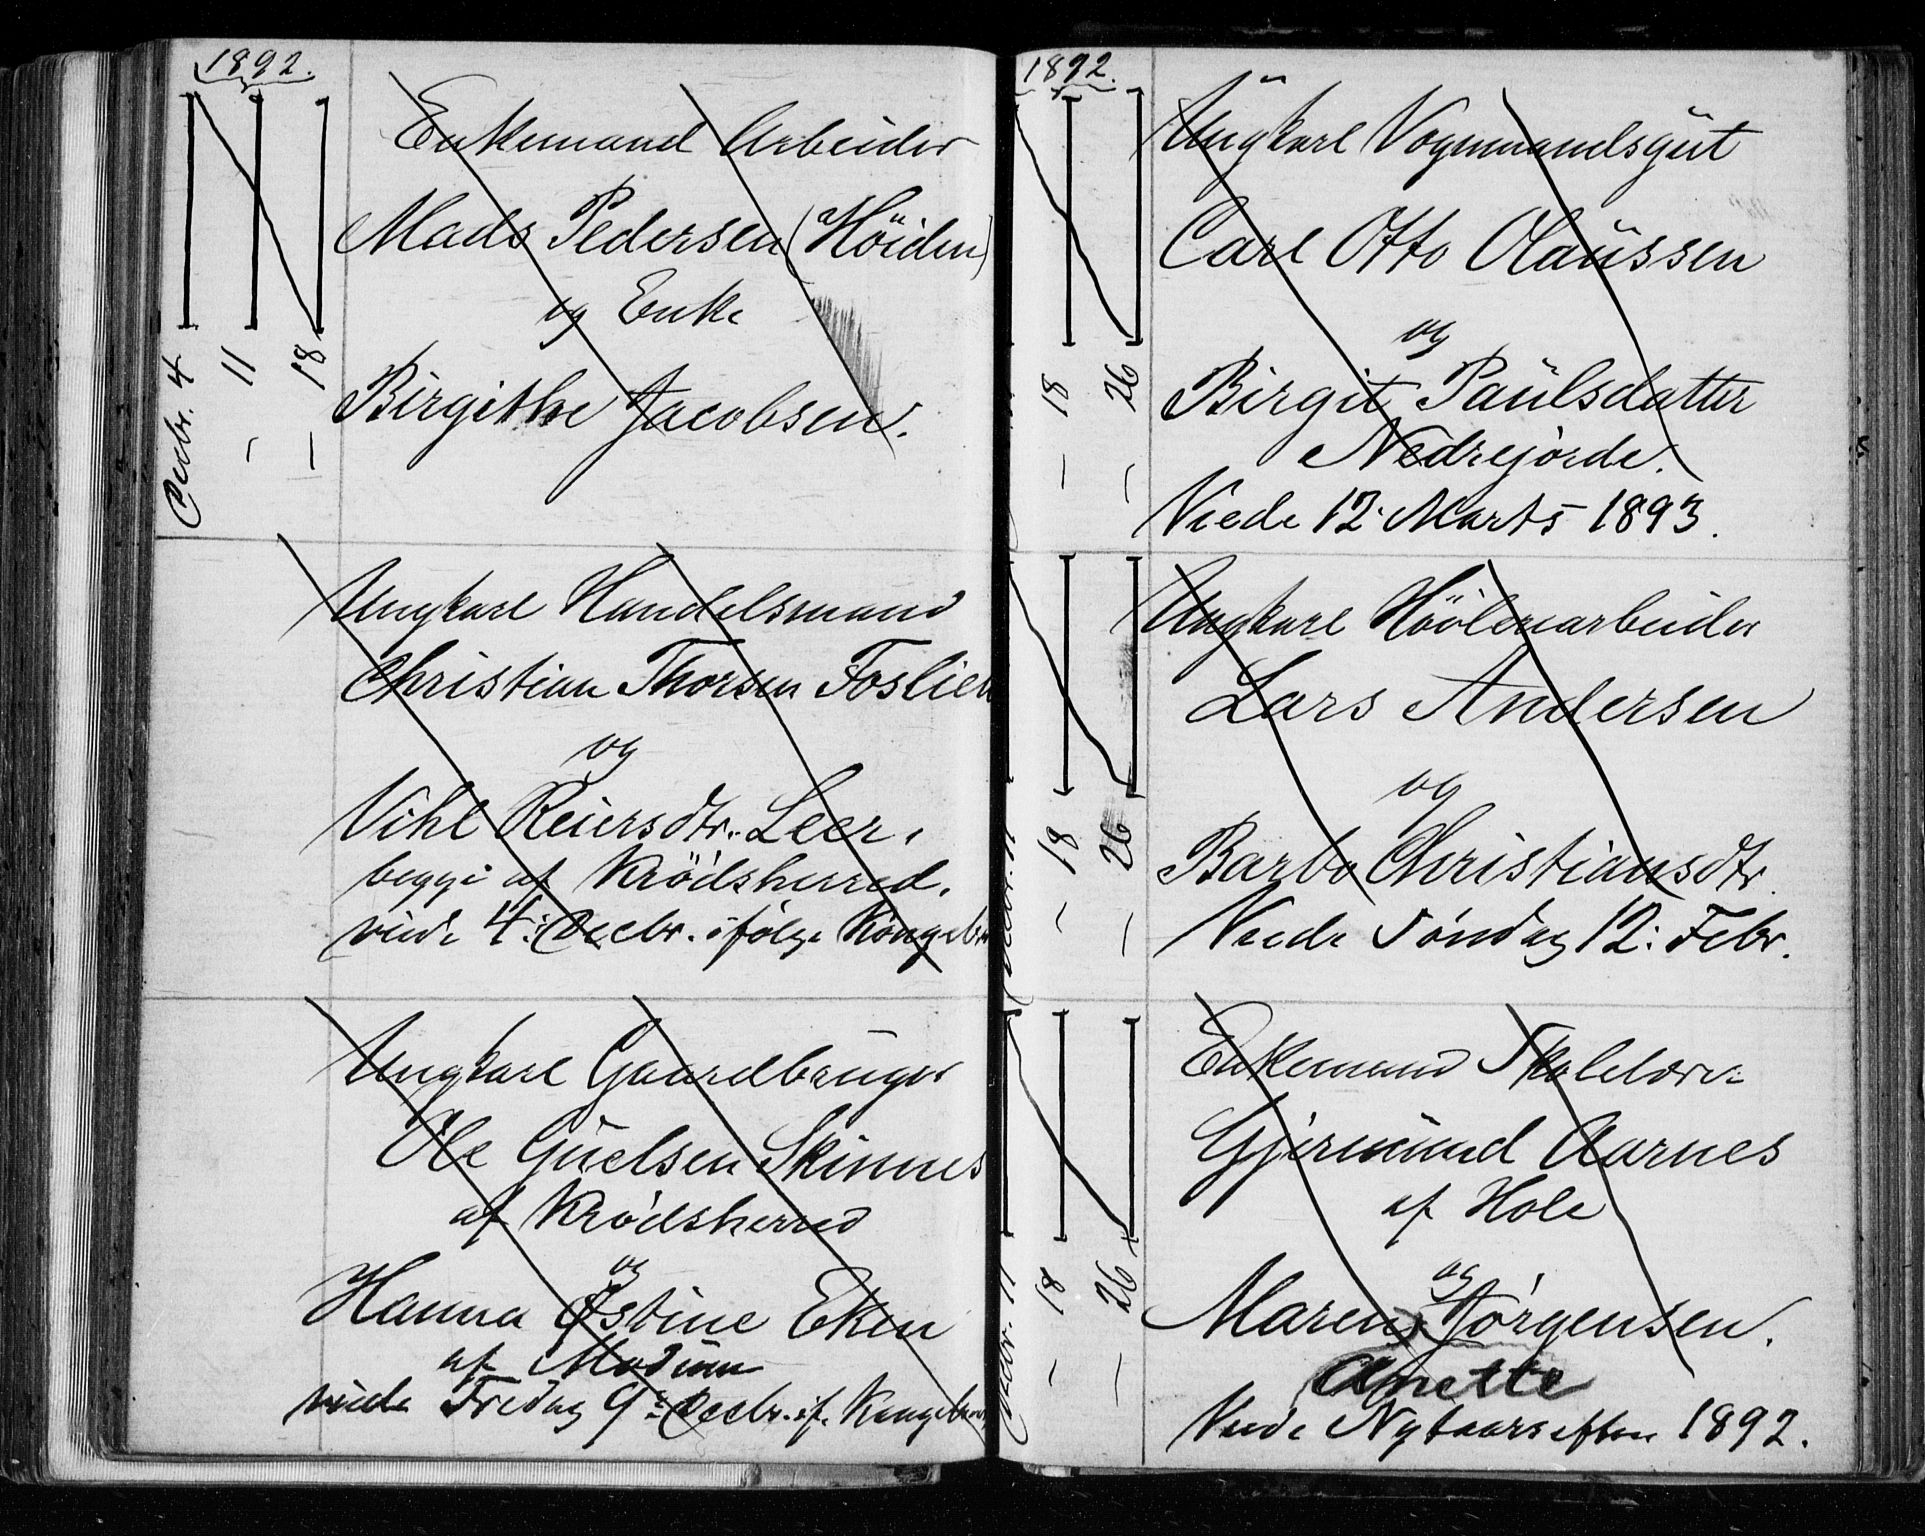 1892.
Decbr. 4
— 11
— 18
Enkemand Arbeider
Mads Pedersen (Höiden)
og Enke
Birgithe Jacobsen.
Ungkarl Handelsmand
Christian Thorsen Foslien
og
Vihl Reiersdtr. Leer.
begge af Krödsherred.
viede 4: Decbr. ifølge Kongebr
Ungkarl Gaardbruger
Ole Guelsen Skinnes
af Krødsherred
og
Hanna Østine Eken
af Modum
viede Fredag 9: Decbr. if. Kongebrev
1892.
— 18
— 26
Ungkarl Vognmandsgut
Carl Otto Olaussen
og
Birgit Paulsdatter
Nedrejorde.
Viede 12. Marts 1893.
Decbr. 11
— 18
— 26
Ungkarl Hövleriarbeider
Lars Andersen
og
Barbo Christiansdtr.
Viede Søndag 12: Febr.
Decbr. 11
— 18
— 26
Enkemand Skolelærer
Gjermund Aarnes
af Hole
og
Maren Jørgensen.
Anette
Viede Nytaarsaften 1892.